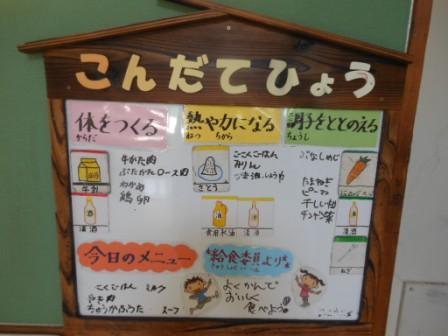 こんだてひょう
体をつくる
からだ
熱や力になる
ねつ ちから
調子をととのえる
ちょうし
牛乳
清酒
牛かた肉
ぶたかたロース肉
わかめ
鶏卵
さとう
食用米油
清酒
ごこくごはん
みりん
ぶなしめじ
たまねぎ
ピーマン
干しいたけ
チンゲン菜
にんじん
清酒
ねぎ
今日のメニュー
ごこくごはん ミルク
スープ
給食委員より
よくかんで
おいしく
食べよう!